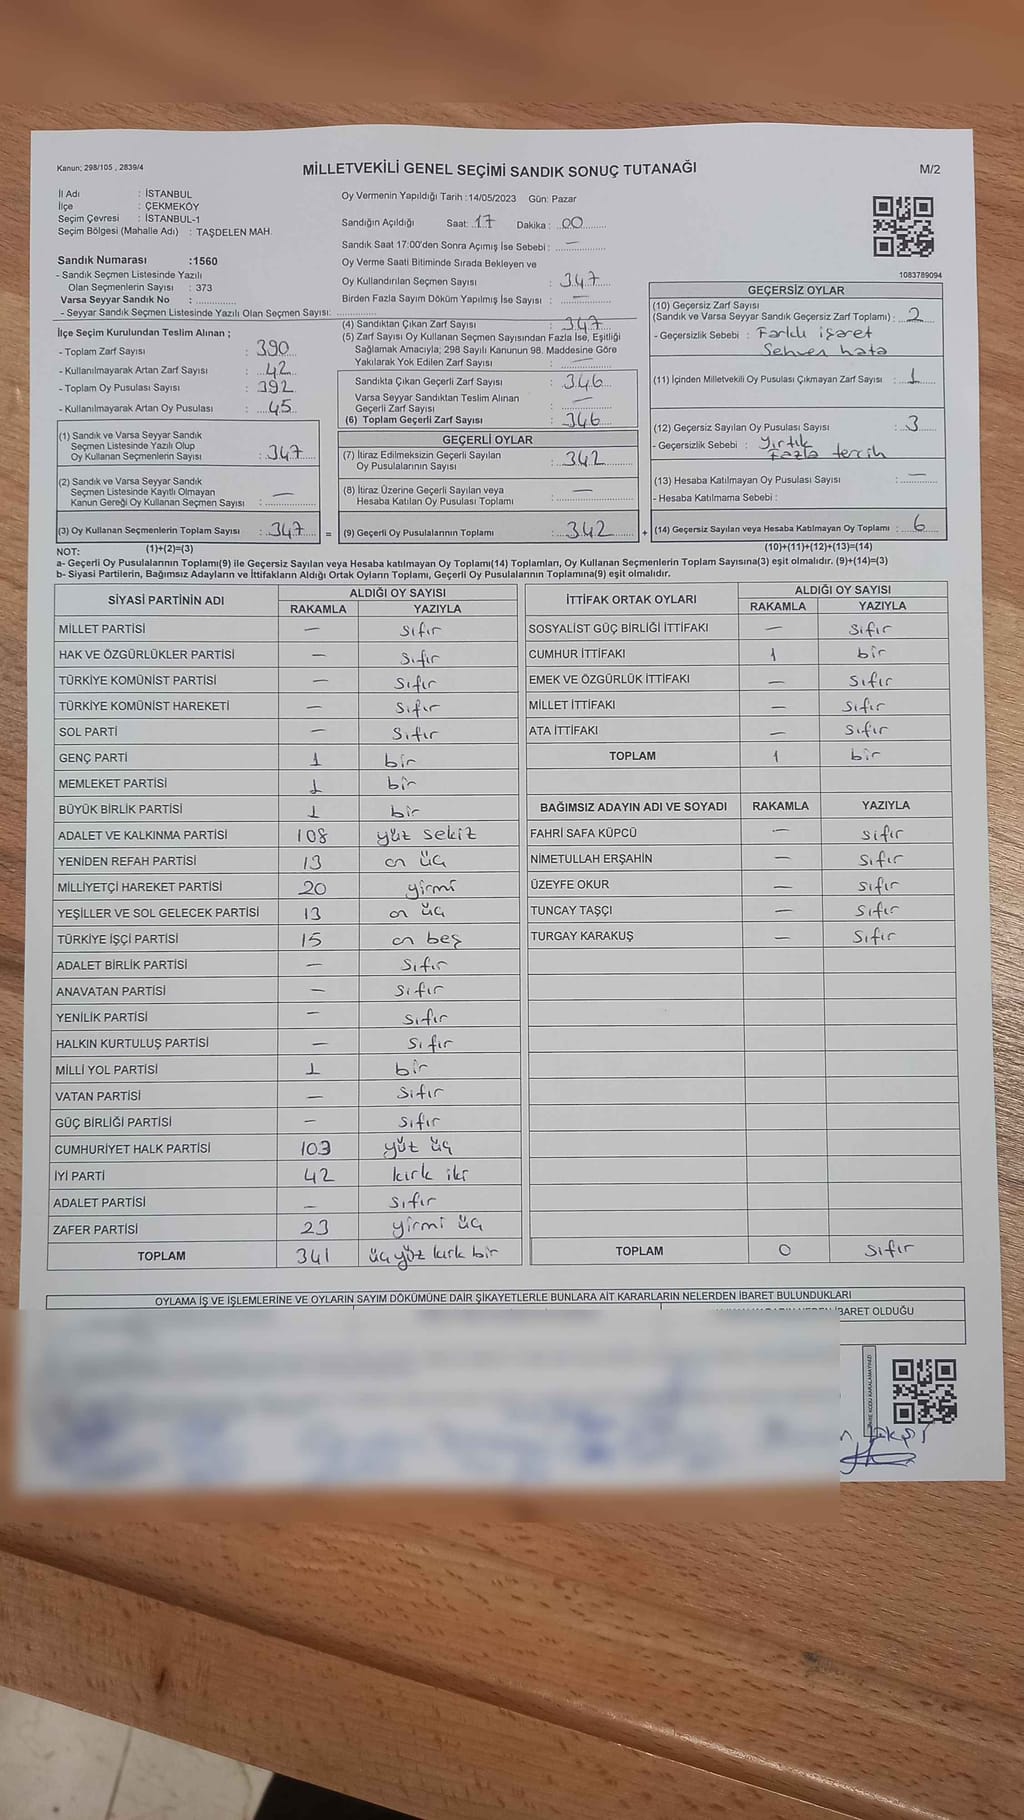 Kanun; 298/105 , 2839/4
MİLLETVEKİLİ GENEL SEÇİMİ SANDIK SONUÇ TUTANAĞI
M/2
İl Adı : İSTANBUL
İlçe : ÇEKMEKÖY
Seçim Çevresi : İSTANBUL-1
Seçim Bölgesi (Mahalle Adı) : TAŞDELEN MAH.
Sandık Numarası :1560
- Sandık Seçmen Listesinde Yazılı
Olan Seçmenlerin Sayısı : 373
Varsa Seyyar Sandık No : ..............
- Seyyar Sandık Seçmen Listesinde Yazılı Olan Seçmen Sayısı: ..............
İlçe Seçim Kurulundan Teslim Alınan ;
- Toplam Zarf Sayısı : 390
- Kullanılmayarak Artan Zarf Sayısı : 42
- Toplam Oy Pusulası Sayısı : 392
- Kullanılmayarak Artan Oy Pusulası : 45
(1) Sandık ve Varsa Seyyar Sandık
Seçmen Listesinde Yazılı Olup
Oy Kullanan Seçmenlerin Sayısı : 347
(2) Sandık ve Varsa Seyyar Sandık
Seçmen Listesinde Kayıtlı Olmayan
Kanun Gereği Oy Kullanan Seçmen Sayısı : —
(3) Oy Kullanan Seçmenlerin Toplam Sayısı : 347 =
Oy Vermenin Yapıldığı Tarih :14/05/2023 Gün: Pazar
Sandığın Açıldığı Saat: 17 Dakika : 00
Sandık Saat 17:00'den Sonra Açımış İse Sebebi : —
Oy Verme Saati Bitiminde Sırada Bekleyen ve
Oy Kullandırılan Seçmen Sayısı : 347
Birden Fazla Sayım Döküm Yapılmış İse Sayısı : —
(4) Sandıktan Çıkan Zarf Sayısı : 347
(5) Zarf Sayısı Oy Kullanan Seçmen Sayısından Fazla İse, Eşitliği
Sağlamak Amacıyla; 298 Sayılı Kanunun 98. Maddesine Göre
Yakılarak Yok Edilen Zarf Sayısı : —
Sandıkta Çıkan Geçerli Zarf Sayısı : 346
Varsa Seyyar Sandıktan Teslim Alınan
Geçerli Zarf Sayısı : —
(6) Toplam Geçerli Zarf Sayısı : 346
GEÇERLİ OYLAR
(7) İtiraz Edilmeksizin Geçerli Sayılan
Oy Pusulalarının Sayısı : 342
(8) İtiraz Üzerine Geçerli Sayılan veya
Hesaba Katılan Oy Pusulası Toplamı : —
(9) Geçerli Oy Pusulalarının Toplamı : 342 +
1083789094
GEÇERSİZ OYLAR
(10) Geçersiz Zarf Sayısı
(Sandık ve Varsa Seyyar Sandık Geçersiz Zarf Toplamı) : 2
- Geçersizlik Sebebi : Farklı işaret
Sehven hata
(11) İçinden Milletvekili Oy Pusulası Çıkmayan Zarf Sayısı : 1
(12) Geçersiz Sayılan Oy Pusulası Sayısı : 3
- Geçersizlik Sebebi : Yırtık
Fazla tercih
(13) Hesaba Katılmayan Oy Pusulası Sayısı : —
- Hesaba Katılmama Sebebi :
(14) Geçersiz Sayılan veya Hesaba Katılmayan Oy Toplamı : 6
NOT: (1)+(2)=(3) (10)+(11)+(12)+(13)=(14)
a- Geçerli Oy Pusulalarının Toplamı(9) ile Geçersiz Sayılan veya Hesaba katılmayan Oy Toplamı(14) Toplamları, Oy Kullanan Seçmenlerin Toplam Sayısına(3) eşit olmalıdır. (9)+(14)=(3)
b- Siyasi Partilerin, Bağımsız Adayların ve İttifakların Aldığı Ortak Oyların Toplamı, Geçerli Oy Pusulalarının Toplamına(9) eşit olmalıdır.
SİYASİ PARTİNİN ADI ALDIĞI OY SAYISI
RAKAMLA YAZIYLA
MİLLET PARTİSİ — sıfır
HAK VE ÖZGÜRLÜKLER PARTİSİ — sıfır
TÜRKİYE KOMÜNİST PARTİSİ — sıfır
TÜRKİYE KOMÜNİST HAREKETİ — sıfır
SOL PARTİ — sıfır
GENÇ PARTİ 1 bir
MEMLEKET PARTİSİ 1 bir
BÜYÜK BİRLİK PARTİSİ 1 bir
ADALET VE KALKINMA PARTİSİ 108 yüz sekiz
YENİDEN REFAH PARTİSİ 13 on üç
MİLLİYETÇİ HAREKET PARTİSİ 20 yirmi
YEŞİLLER VE SOL GELECEK PARTİSİ 13 on üç
TÜRKİYE İŞÇİ PARTİSİ 15 on beş
ADALET BİRLİK PARTİSİ — sıfır
ANAVATAN PARTİSİ — sıfır
YENİLİK PARTİSİ — sıfır
HALKIN KURTULUŞ PARTİSİ — sıfır
MİLLİ YOL PARTİSİ 1 bir
VATAN PARTİSİ — sıfır
GÜÇ BİRLİĞİ PARTİSİ — sıfır
CUMHURİYET HALK PARTİSİ 103 yüz üç
İYİ PARTİ 42 kırk iki
ADALET PARTİSİ — sıfır
ZAFER PARTİSİ 23 yirmi üç
TOPLAM 341 üçyüz kırk bir
İTTİFAK ORTAK OYLARI ALDIĞI OY SAYISI
RAKAMLA YAZIYLA
SOSYALİST GÜÇ BİRLİĞİ İTTİFAKI — sıfır
CUMHUR İTTİFAKI 1 bir
EMEK VE ÖZGÜRLÜK İTTİFAKI — sıfır
MİLLET İTTİFAKI — sıfır
ATA İTTİFAKI — sıfır
TOPLAM 1 bir
BAĞIMSIZ ADAYIN ADI VE SOYADI RAKAMLA YAZIYLA
FAHRİ SAFA KÜPCÜ — sıfır
NİMETULLAH ERŞAHİN — sıfır
ÜZEYFE OKUR — sıfır
TUNCAY TAŞÇI — sıfır
TURGAY KARAKUŞ — sıfır
TOPLAM 0 sıfır
OYLAMA İŞ VE İŞLEMLERİNE VE OYLARIN SAYIM DÖKÜMÜNE DAİR ŞİKAYETLERLE BUNLARA AİT KARARLARIN NELERDEN İBARET BULUNDUKLARI
İBARET OLDUĞU